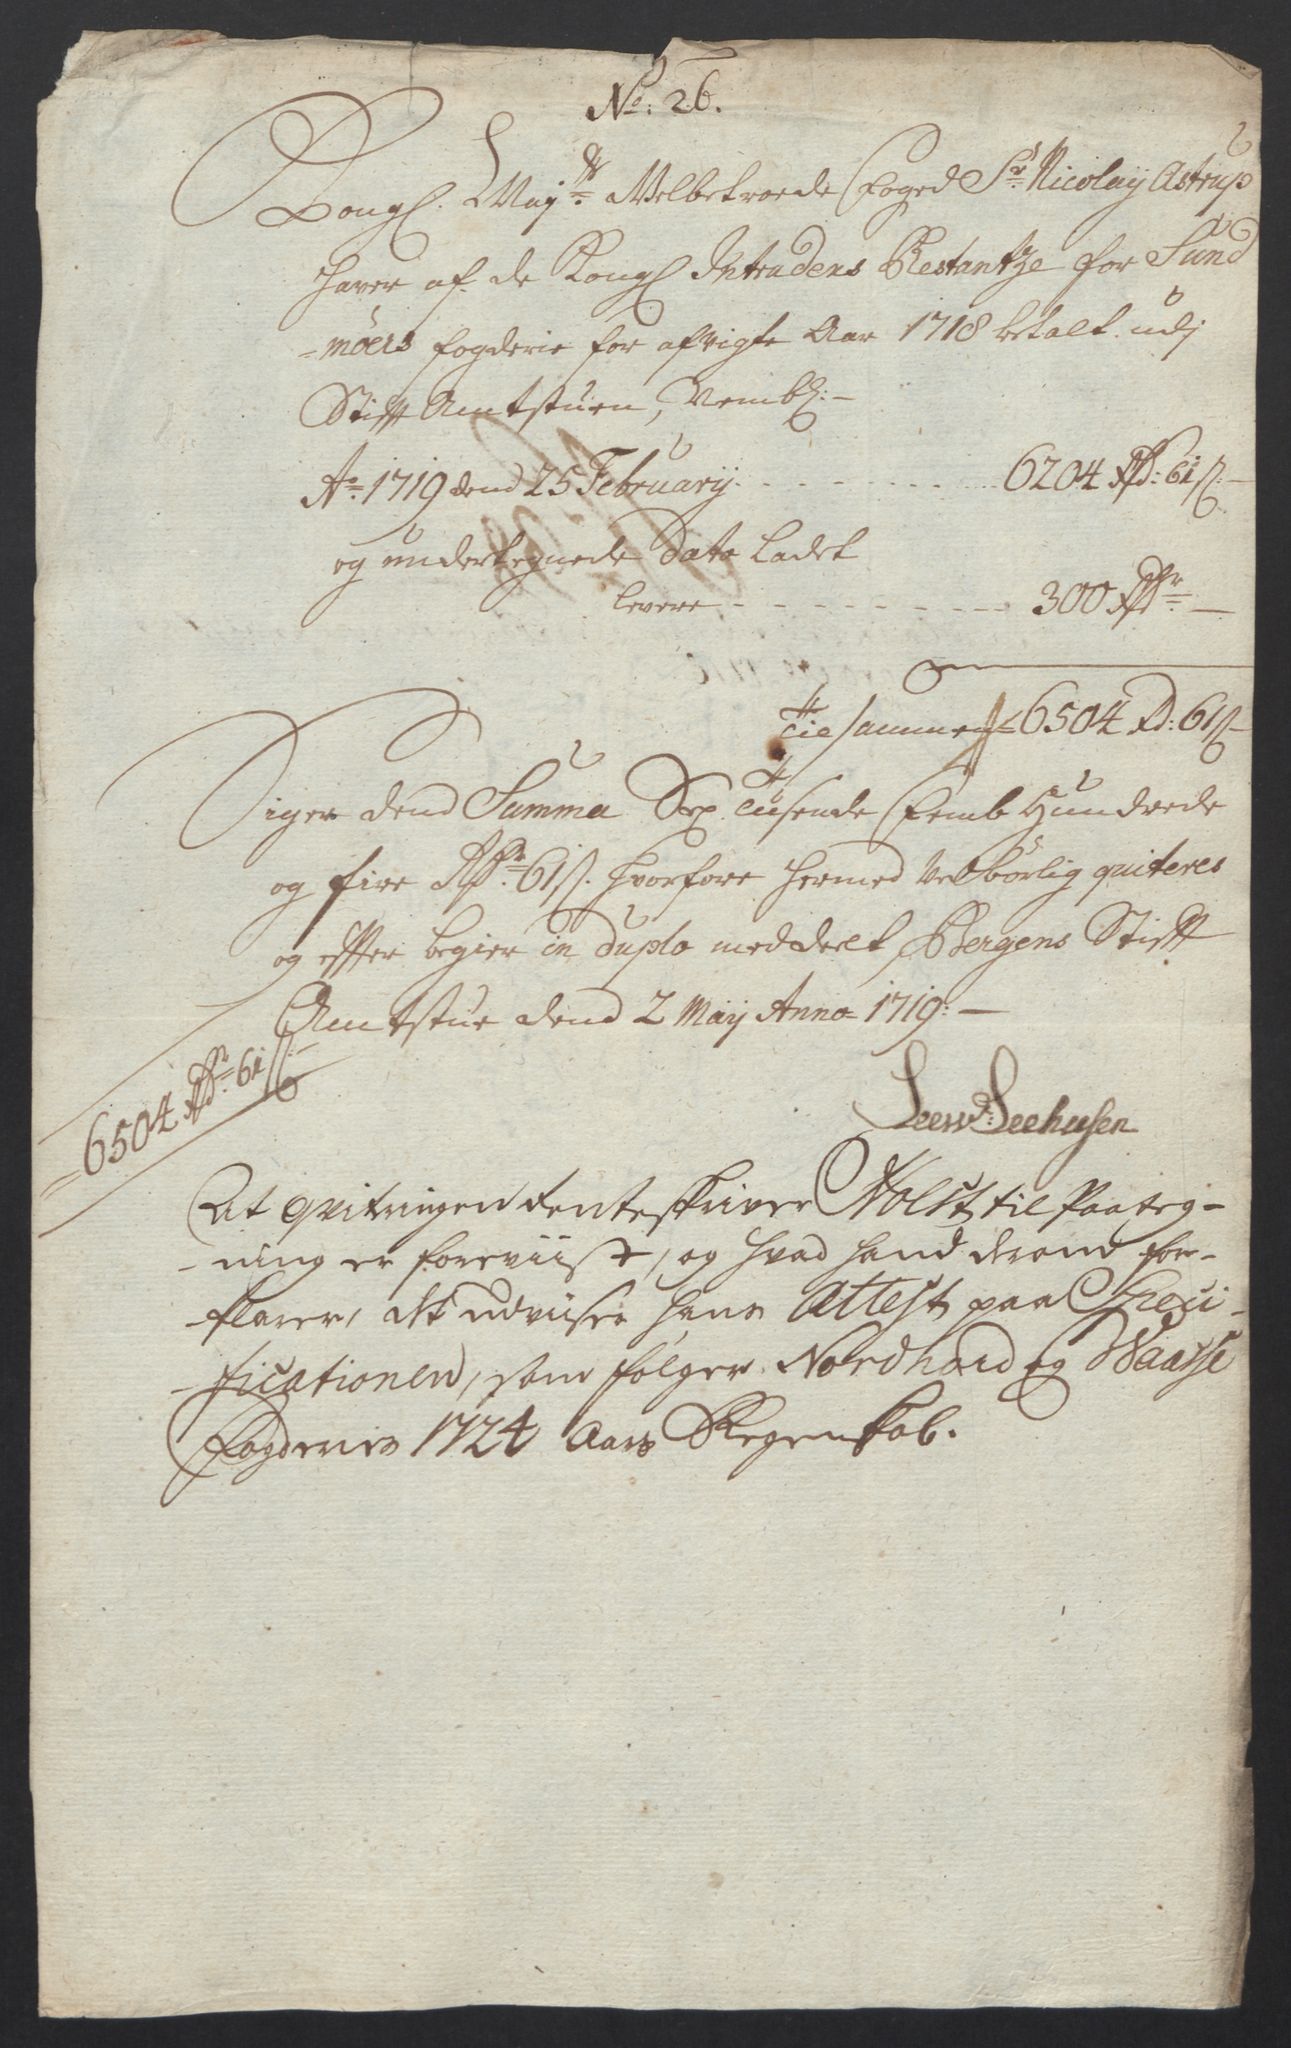 No: 26.
Kongl. Maj:ts Welbetroede Foged Sr. Nicolay Astrup
haver af de Kongl Intradens Restantze for Sund
=mörs fogderie for afvigte Aar 1718 betalt udj
Stift Amtstuen, Nembl:—
Ao. 1719 dend 25 February. - - - - - - - 6204 Rd: 61 s:—
og underteegnede Dato Ladet
levere - - - - - - - - 300 Rdr —
Tilsammen = 6504 Rd: 61 s—
Siger dend Summa Sex Tusende Femb Hundrede
og fire Rdr: 61 s. hvorfore hermed velbörlig quiteres
og effter begier in duplo meddeelt, Bergens Stifft
Amtstue dend 2 Maij Anno 1719:—
=6504 Rdr: 61 s:
Seehusen
At qvitringen Renteskriver Holst til Paateg-
-ning er foreviist, og hvad hand derom for-
-klarer, det udviser hans Attest paa Speci-
-ficationen, som følger Nordhord og Waasse
Fogderies 1724 Aars Regenskab.